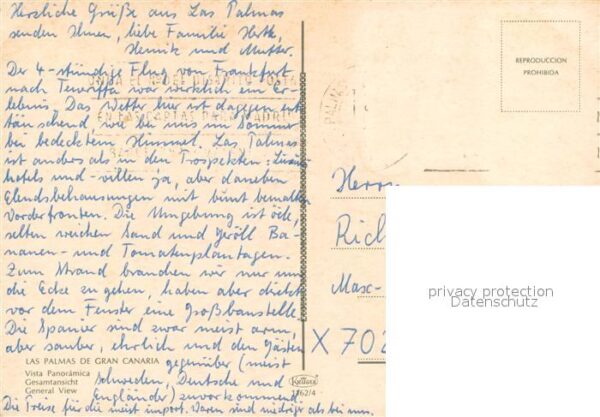 Herzliche Grüße aus Las Palmas
senden Ihnen, liebe Familie
Henrik und Mutter.
Der 4-stündige Flug von Frankfurt
nach Teneriffa war wirklich ein Er-
lebnis. Das Wetter hier ist dagegen ent
täuschend, wie bei uns im Sommer
bei bedecktem Himmel. Las Palmas
ist anders als in den Prospekten: Luxus
hotels und -villen ja, aber daneben
Elendsbehausungen mit bunt bemalten
Vorderfronten. Die Umgebung ist öde,
selten weichen Sand und Geröll Ba-
nanen- und Tomatenplantagen.
Zum Strand brauchen wir nur um
die Ecke zu gehen, haben aber dicht
vor dem Fenster eine Großbaustelle
Die Spanier sind zwar meist arm,
aber sauber, ehrlich und den Gästen
gegenüber (meist
Schweden, Deutsche und
Engländer) zuvorkommend.
Die Preise für die meist import. Waren sind niedriger als bei uns.
LAS PALMAS DE GRAN CANARIA
Vista Panorámica
Gesamtansicht
General View
REPRODUCCION
PROHIBIDA
Herrn
Rich
Max-
X 702
privacy protection
Datenschutz